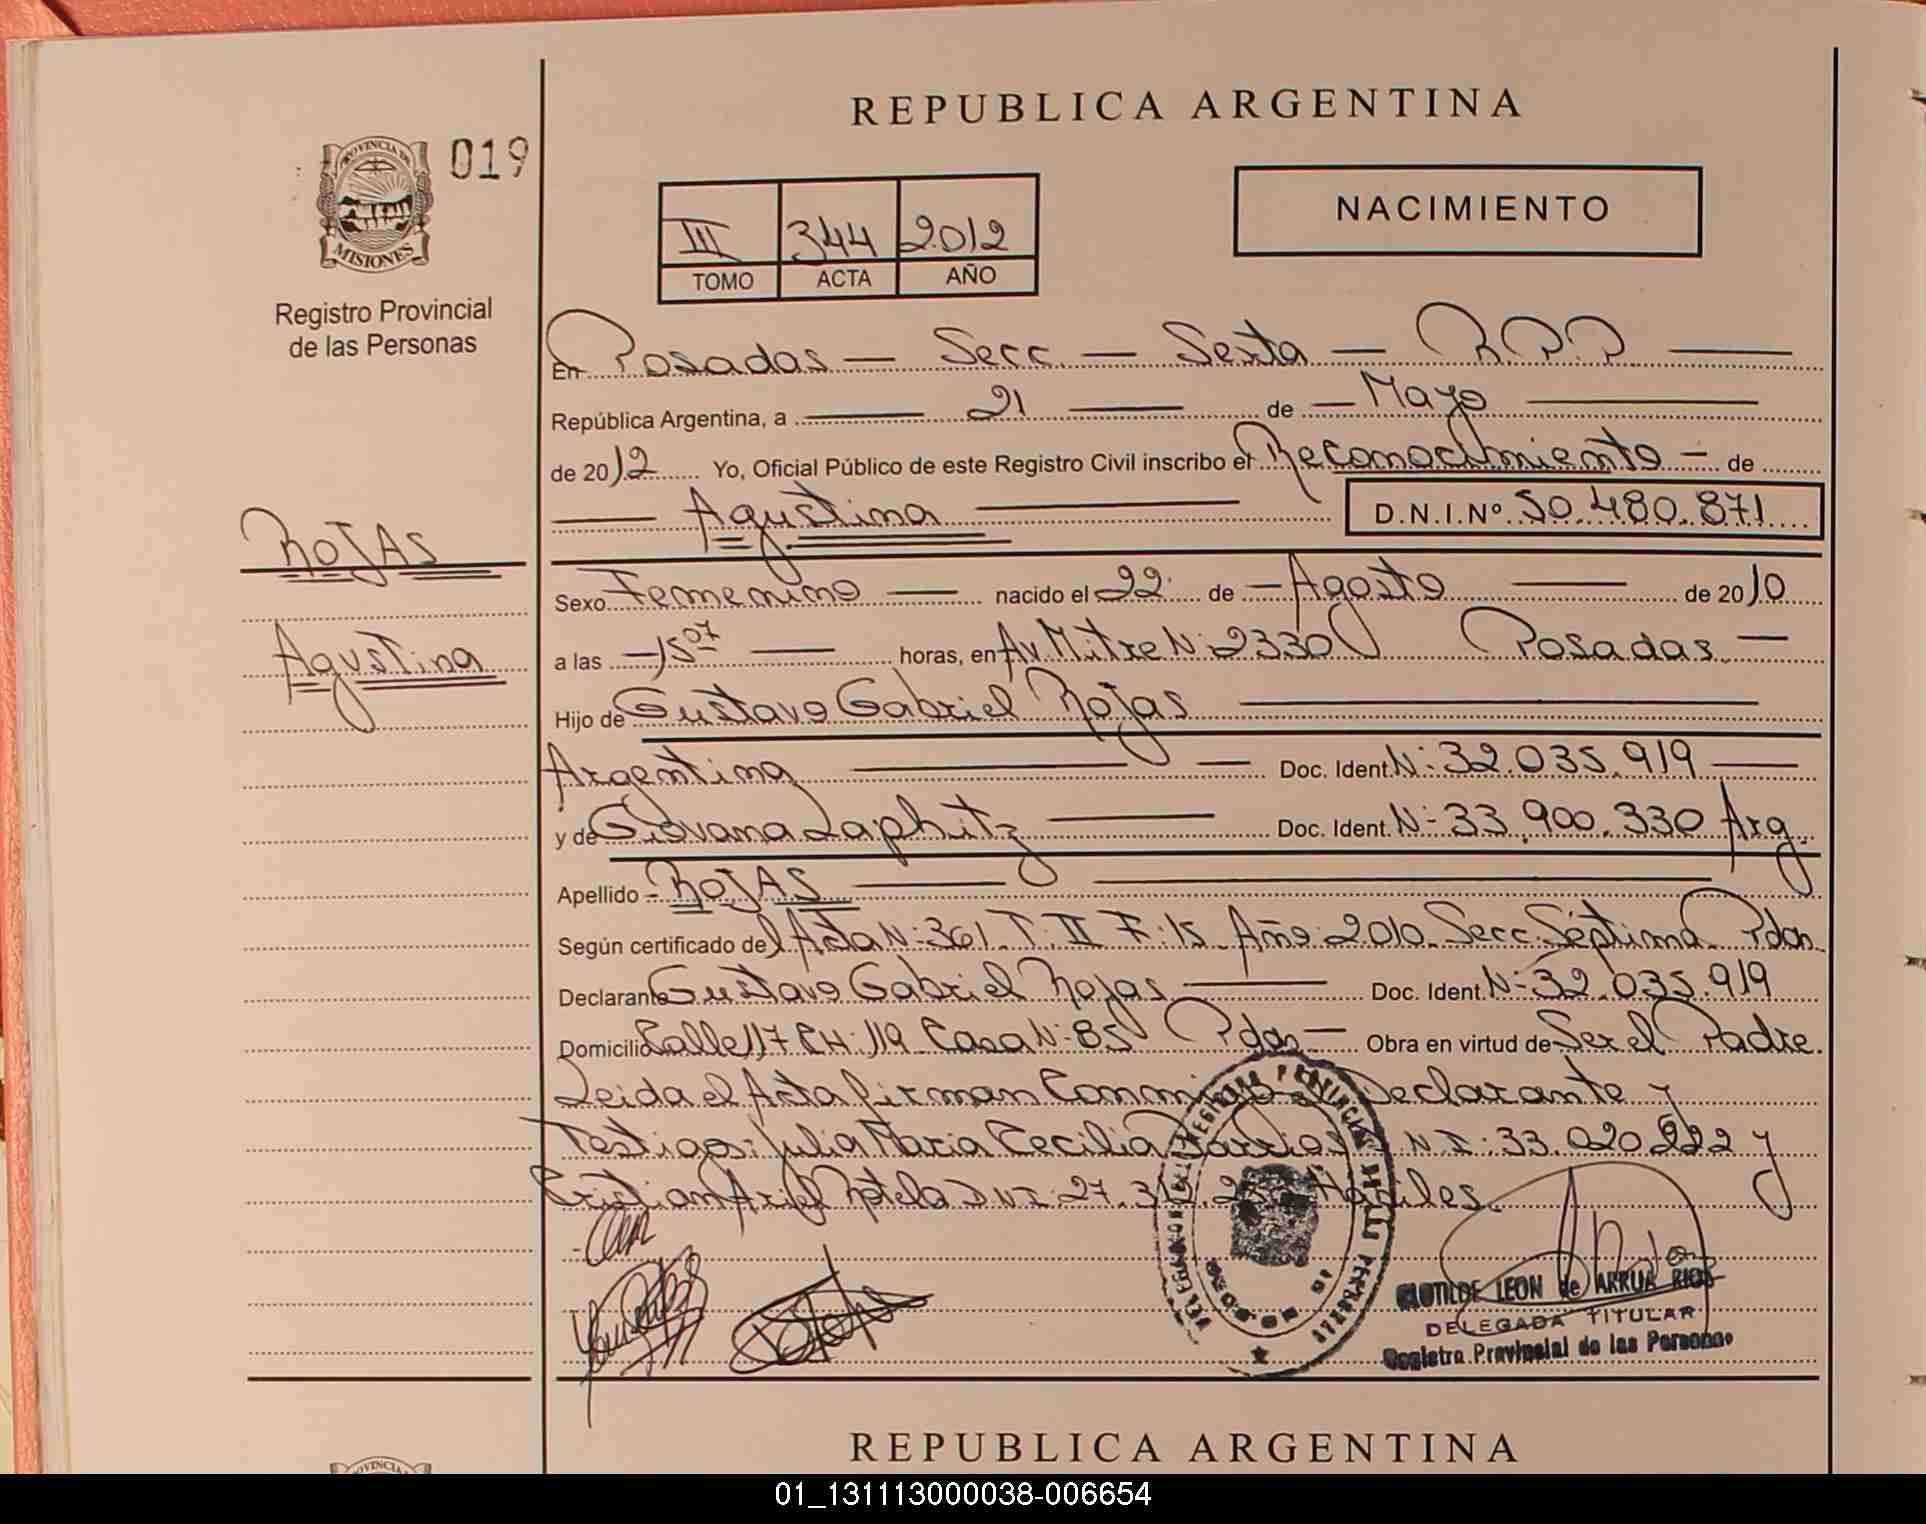 REPUBLICA ARGENTINA
PROVINCIA DE
MISIONES
019
Registro Provincial
de las Personas
III 344 2012
TOMO ACTA AÑO
NACIMIENTO
En Posadas — Secc. — Sexta — R.P.P —
República Argentina, a — 21 — de — Mayo —
de 2012 Yo, Oficial Público de este Registro Civil inscribo el Reconocimiento — de
— Agustina — D.N.I.Nº 50.480.871
ROJAS
Agustina
Sexo Femenino — nacido el 22 de — Agosto — de 2010
a las — 15 07 — horas, en Av. Mitre N: 2330 Posadas —
Hijo de Gustavo Gabriel Rojas —
Argentina — — Doc. Ident. N: 32.035.919 —
y de Giovana Laphitz — Doc. Ident. N: 33.900.330 Arg.
Apellido - ROJAS — —
Según certificado del Acta N: 361 T: II F: 15 Año 2010 Secc. Séptima Pdas.
Declarante Gustavo Gabriel Rojas — Doc. Ident. N: 32.035.919
Domicilio Calle 117 CH: 119 Casa N: 85 Pdas — Obra en virtud de Ser el Padre.
Leida el Acta firman Conmigo el Declarante y
Testigos: Julia Maria Cecilia Barrios N I: 33.020.222 y
Cristian Ariel Rotela D N I: 27. Hábiles.
CLOTILDE LEON de ARRUA RIOS
DELEGADA TITULAR
Registro Provincial de las Personas
REPUBLICA ARGENTINA
01_131113000038-006654